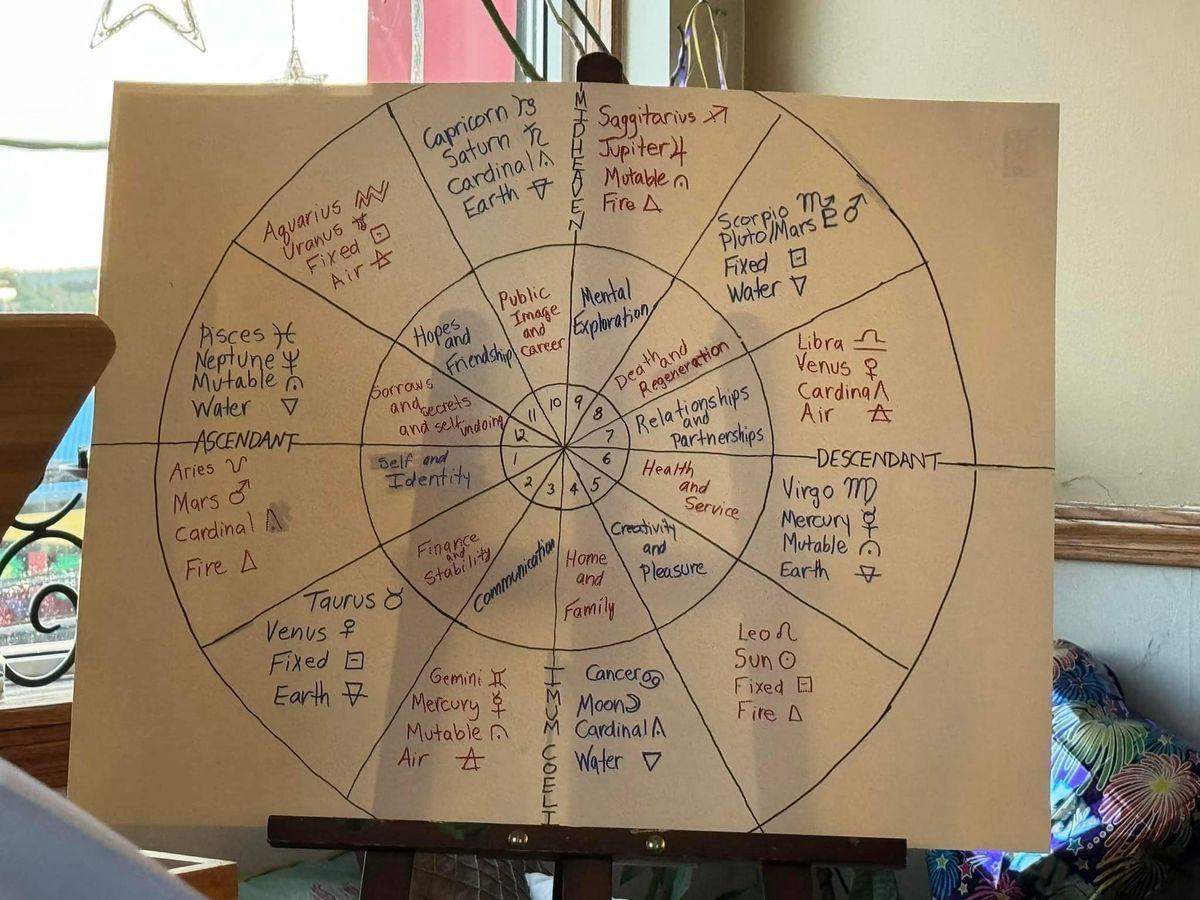 MIDHEAVEN
Capricorn ♑
Saturn ♄
Cardinal
Earth
Saggitarius ♐
Jupiter ♃
Mutable
Fire △
Scorpio ♏
Pluto/Mars ♇ ♂
Fixed
Water ▽
Libra ♎
Venus ♀
Cardinal
Air
DESCENDANT
Virgo ♍
Mercury ☿
Mutable
Earth
Leo ♌
Sun ☉
Fixed
Fire △
Cancer ♋
Moon ☽
Cardinal
Water ▽
IMUM COELI
Gemini ♊
Mercury ☿
Mutable
Air
Taurus ♉
Venus ♀
Fixed
Earth
Aries ♈
Mars ♂
Cardinal
Fire △
ASCENDANT
Pisces ♓
Neptune ♆
Mutable
Water ▽
Aquarius ♒
Uranus ♅
Fixed
Air
Public
Image
and
Career
Mental
Exploration
Death and
Regeneration
Relationships
and
Partnerships
Health
and
Service
Creativity
and
Pleasure
Home
and
Family
Communication
Finance
and
Stability
Self and
Identity
Sorrows
and secrets
and self undoing
Hopes
and
Friendship
1
2
3
4
5
6
7
8
9
10
11
12